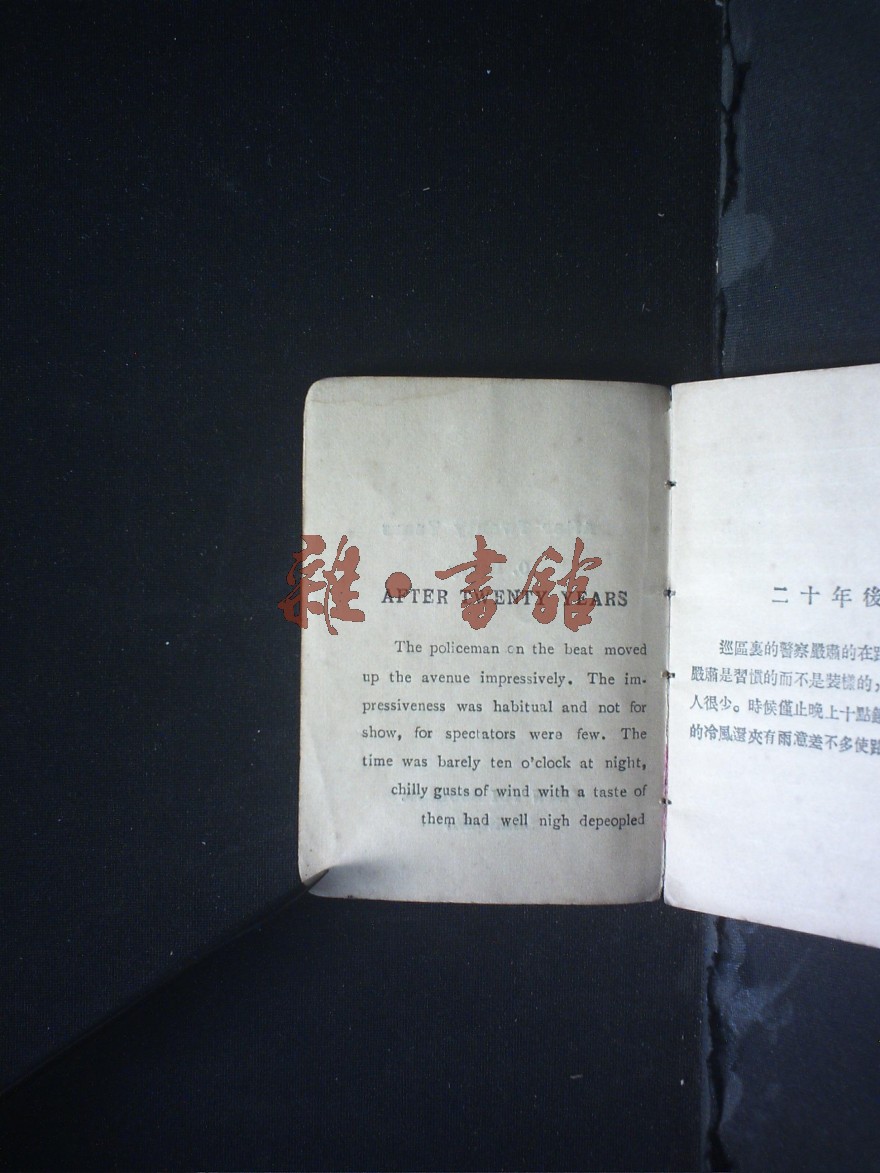 AFTER TWENTY YEARS
The policeman on the beat moved
up the avenue impressively. The im-
pressiveness was habitual and not for
show, for spectators were few. The
time was barely ten o'clock at night,
chilly gusts of wind with a taste of
them had well nigh depeopled
二十年後
巡區裏的警察嚴肅的在路
嚴肅是習慣的而不是裝樣的，
人很少。時候僅止晚上十點鐘
的冷風還夾有雨意差不多使路
雜·書館